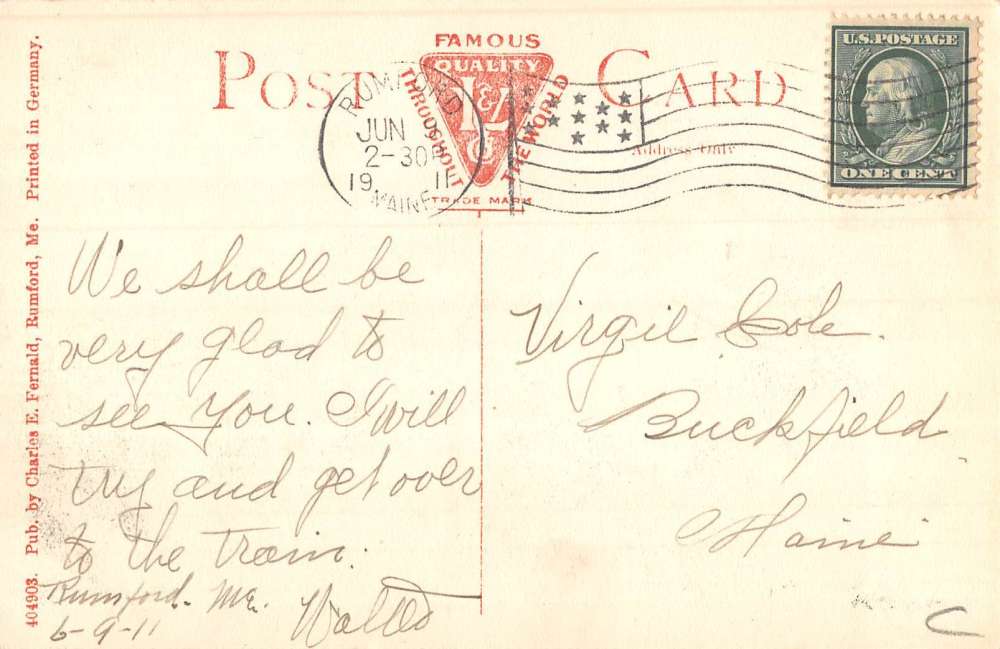 FAMOUS
POST CARD
QUALITY
THROUGHOUT
THE WORLD
L&Co
TRADE MARK
Address Only
U.S. POSTAGE
ONE CENT
RUMFORD
JUN
2-30P
19 11
MAINE
404903. Pub. by Charles E. Fernald, Rumford, Me. Printed in Germany.
We shall be
very glad to
see you. I will
try and get over
to the train.
Rumford. Me.
6-9-11
Virgil Cole.
Buckfield
Maine
C